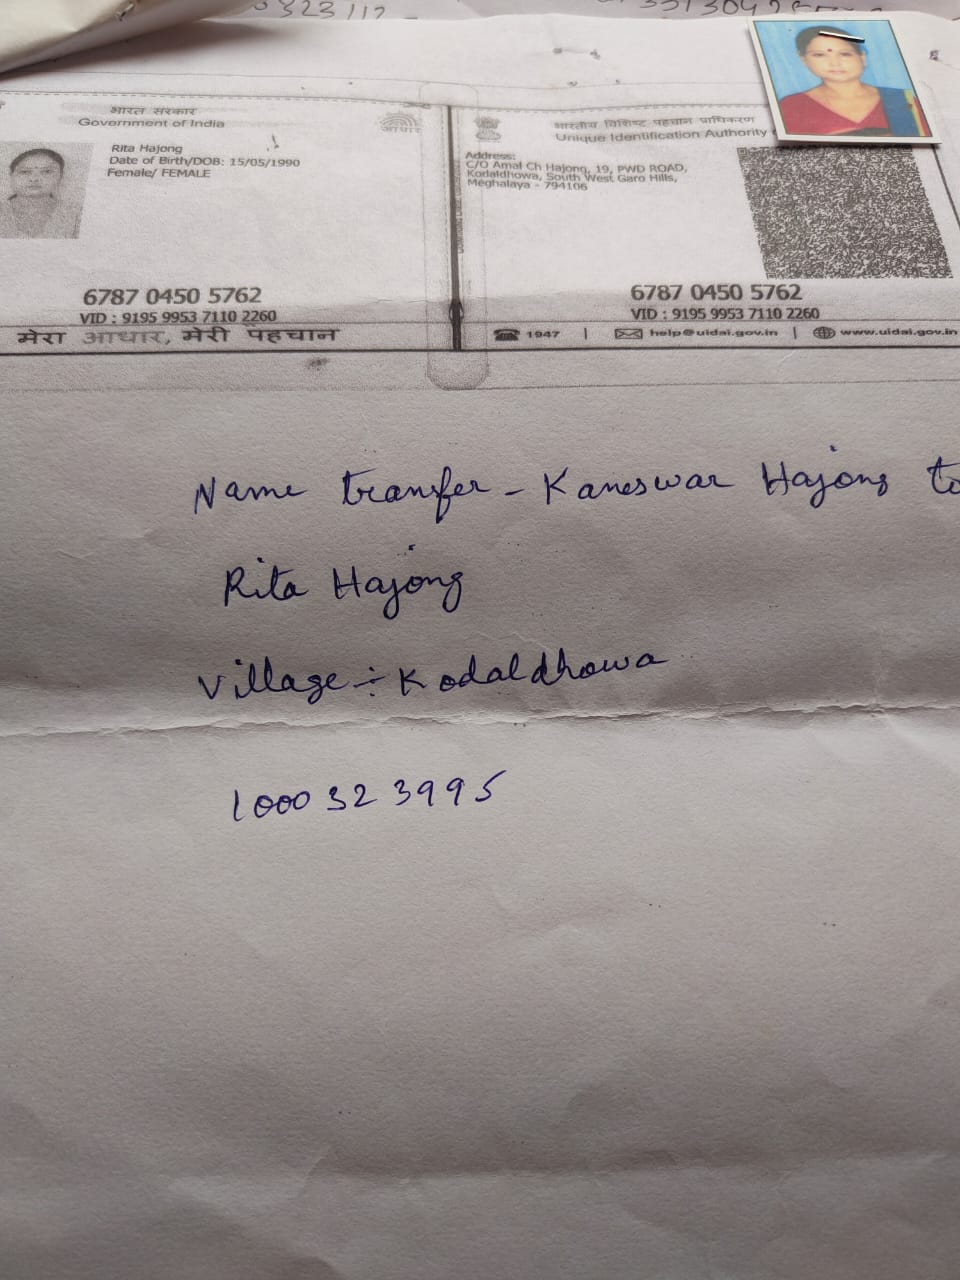 भारत सरकार
Government of India
Rita Hajong
Date of Birth/DOB: 15/05/1990
Female/ FEMALE
6787 0450 5762
VID : 9195 9953 7110 2260
मेरा आधार, मेरी पहचान
आधार
भारतीय विशिष्ट पहचान प्राधिकरण
Unique Identification Authority
Address:
C/O Amal Ch Hajong, 19, PWD ROAD,
Kodaldhowa, South West Garo Hills,
Meghalaya - 794106
6787 0450 5762
VID : 9195 9953 7110 2260
1947 | help@uidai.gov.in | www.uidai.gov.in
Name transfer - Kaneswar Hajong to
Rita Hajong
Village ÷ Kodaldhowa
1000323995